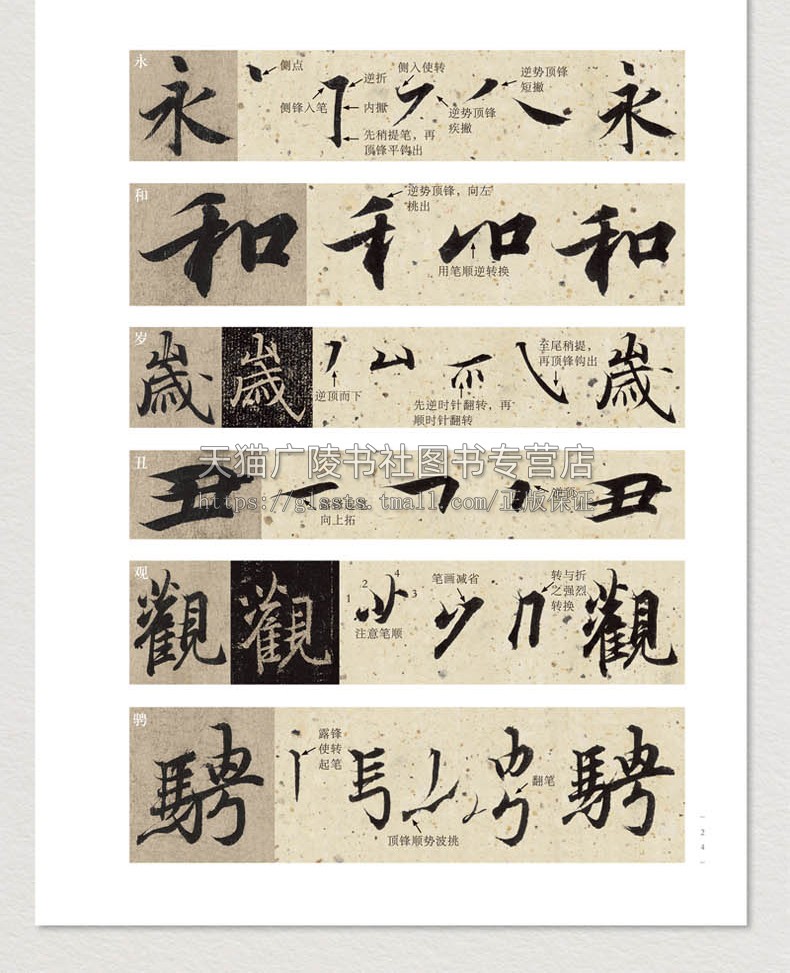 永
永
侧点
侧锋入笔
逆折
内擫
先稍提笔，再
顶锋平钩出
侧入使转
逆势顶锋
疾撇
逆势顶锋
短撇
永
和
和
逆势顶锋，向左
桃出
用笔顺逆转换
和
岁
歲
歲
逆顶而下
先逆时针翻转，再
顺时针翻转
至尾稍提，
再顶锋钩出
歲
天猫广陵书社图书专营店
https://glssts.tmall.com/正版保证
丑
丑
向上拓
逆顶
丑
观
觀
觀
1
2
4
3
注意笔顺
笔画减省
转与折
之强烈
转换
觀
骋
騁
露锋
使转
起笔
顶锋顺势波挑
翻笔
騁
24